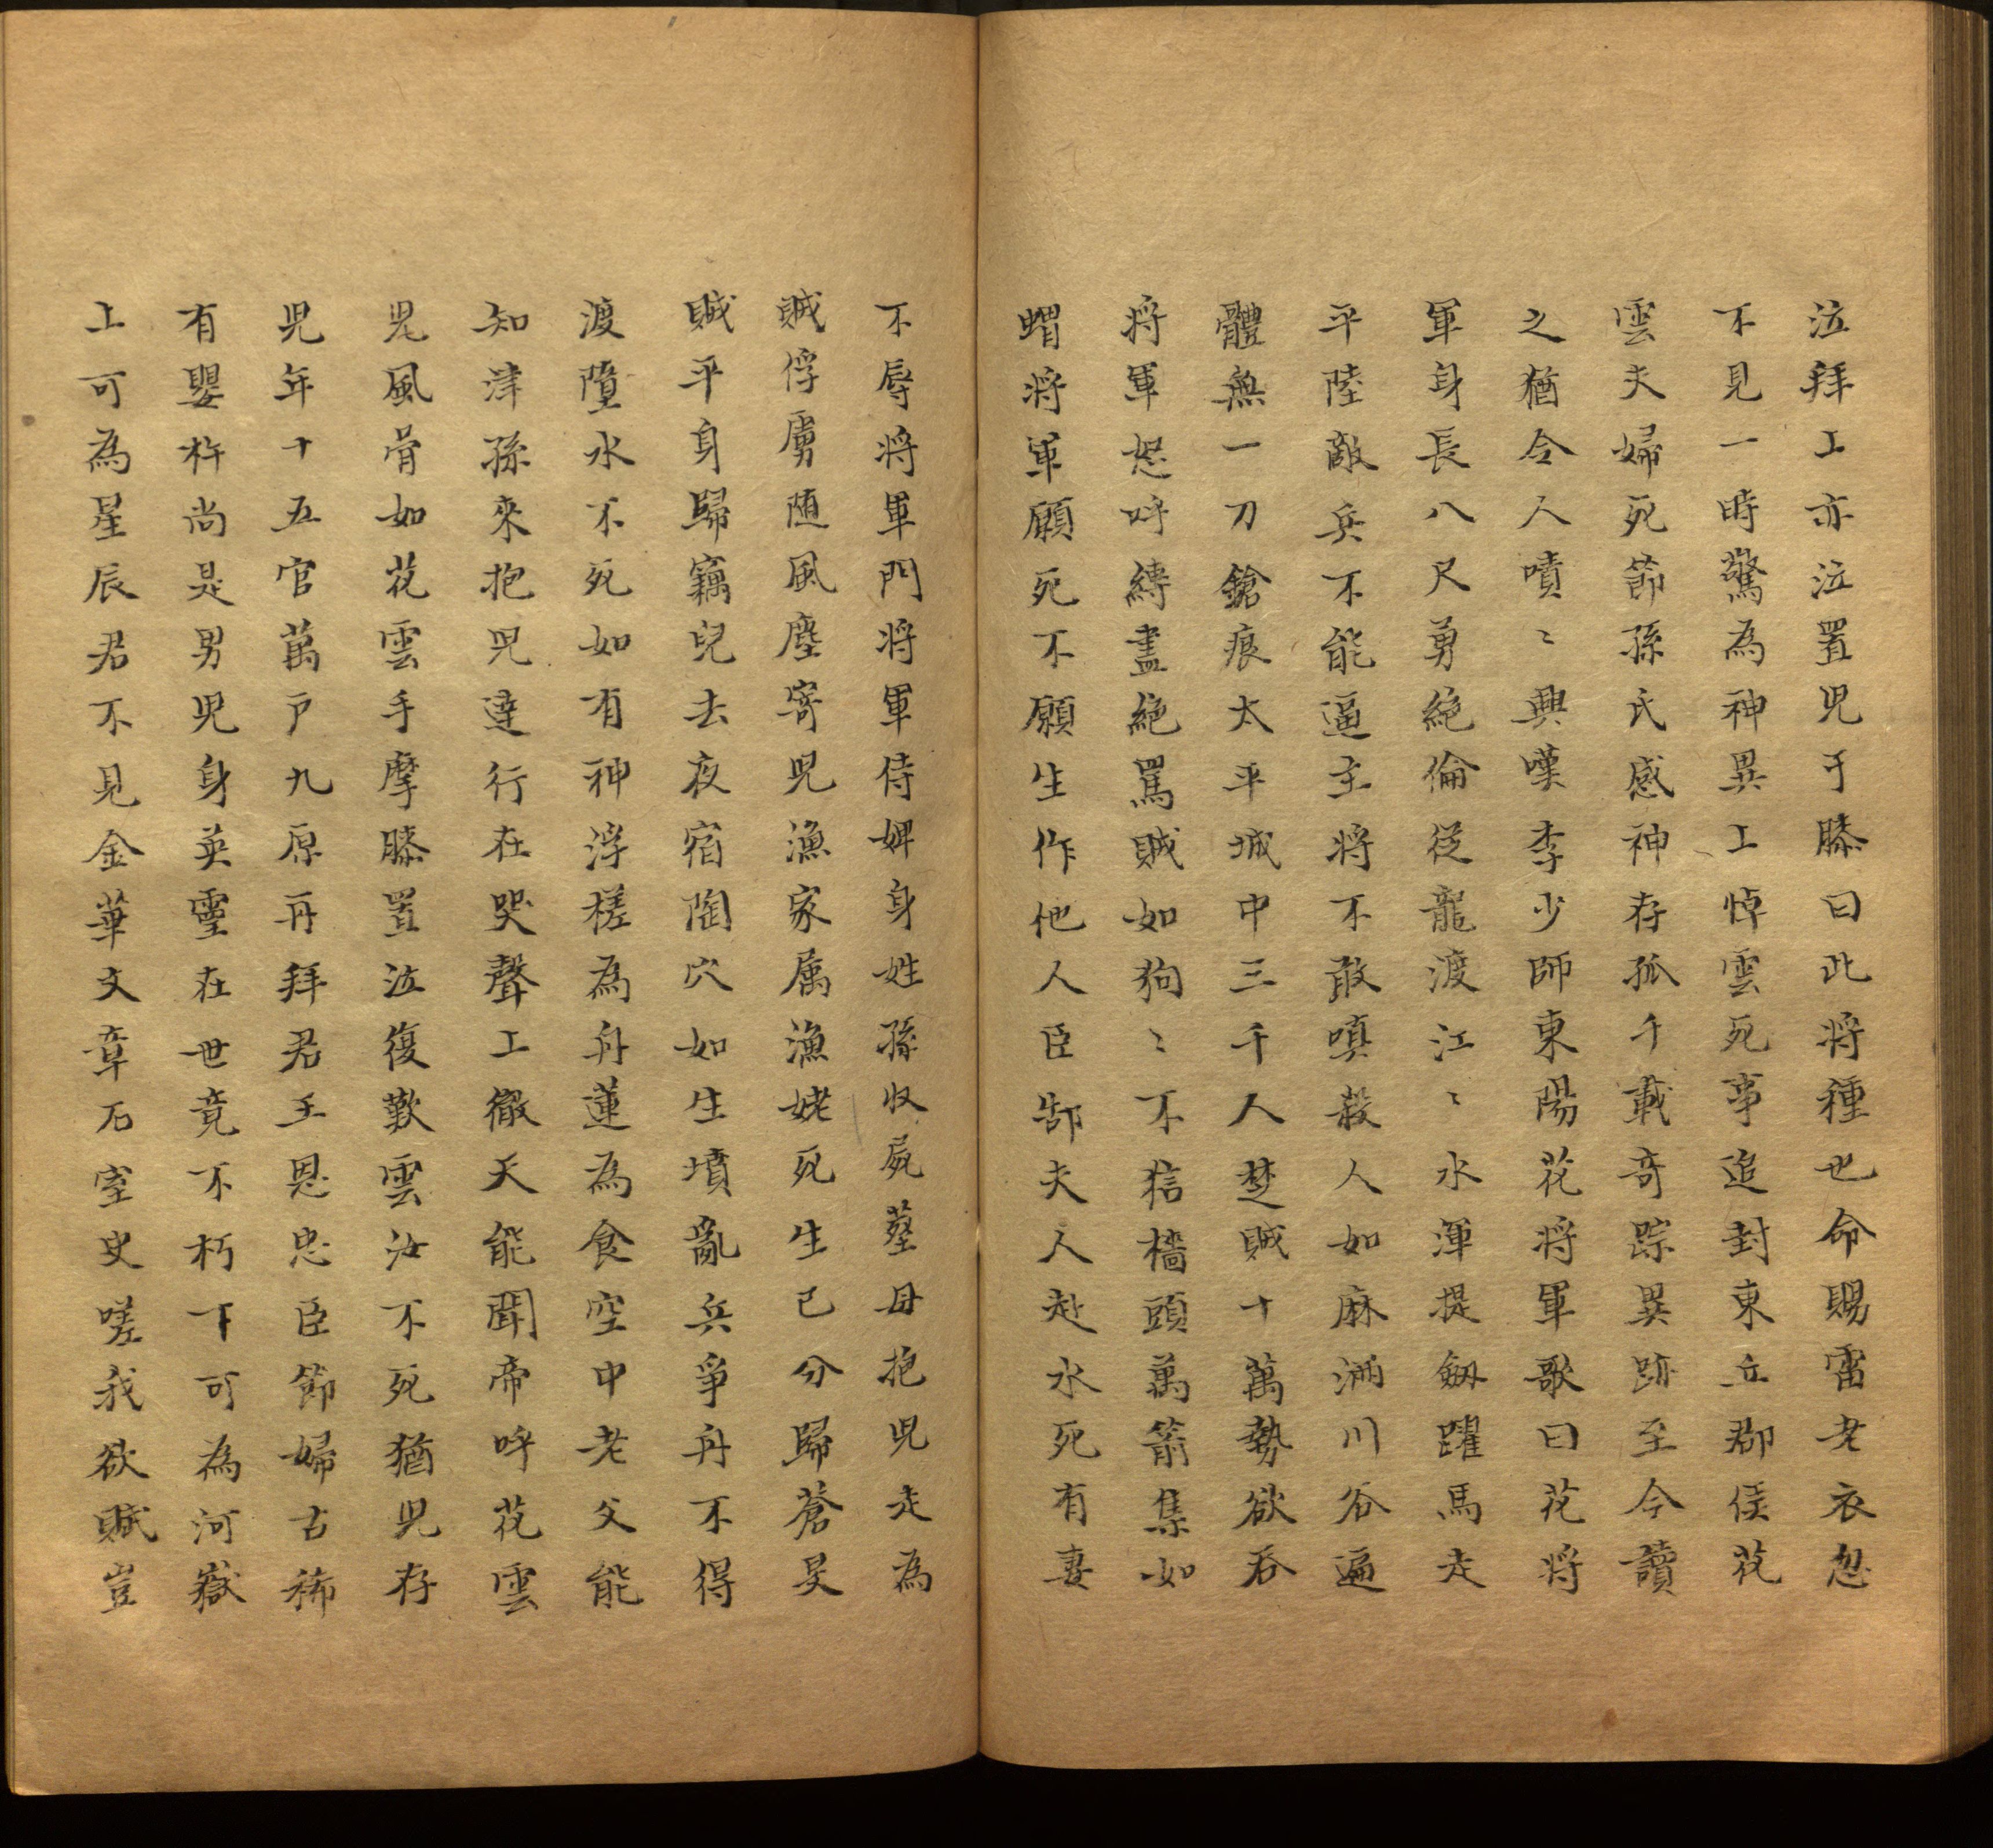 泣拜上亦泣置児于膝曰此将種也命賜雷老衣忽
不見一時驚為神異上悼雲死事追封東丘郡侯花
雲夫婦死節孫氏感神存孤千載奇踪異跡至今讀
之猶令人嘖〻興嘆李少師東陽花将軍歌曰花将
軍身長八尺勇絶倫從龍渡江〻水渾提劔躍馬走
平陸敵兵不能逼主将不敢嗔殺人如麻滿川谷遍
體無一刀鎗痕太平城中三千人楚賊十萬勢欲吞
将軍怒呼縛盡絶罵賊如狗〻不狺檣頭萬箭集如
蝟将軍願死不願生作他人臣郜夫人赴水死有妻
不辱将軍門将軍侍婢身姓孫収屍塟母抱児走為
賊俘虜随風塵寄児漁家属漁姥死生已分歸蒼旻
賊平身歸竊兒去夜宿陶穴如生墳亂兵爭舟不得
渡墮水不死如有神浮槎為舟蓮為食空中老父能
知津孫來抱児達行在哭聲上徹天能聞帝呼花雲
児風骨如花雲手摩膝置泣復歎雲汝不死猶児存
児年十五官萬戸九原再拜君王恩忠臣節婦古稀
有嬰杵尚是男児身英靈在世竟不朽下可為河嶽
上可為星辰君不見金華文章石室史嗟我欲賦豈